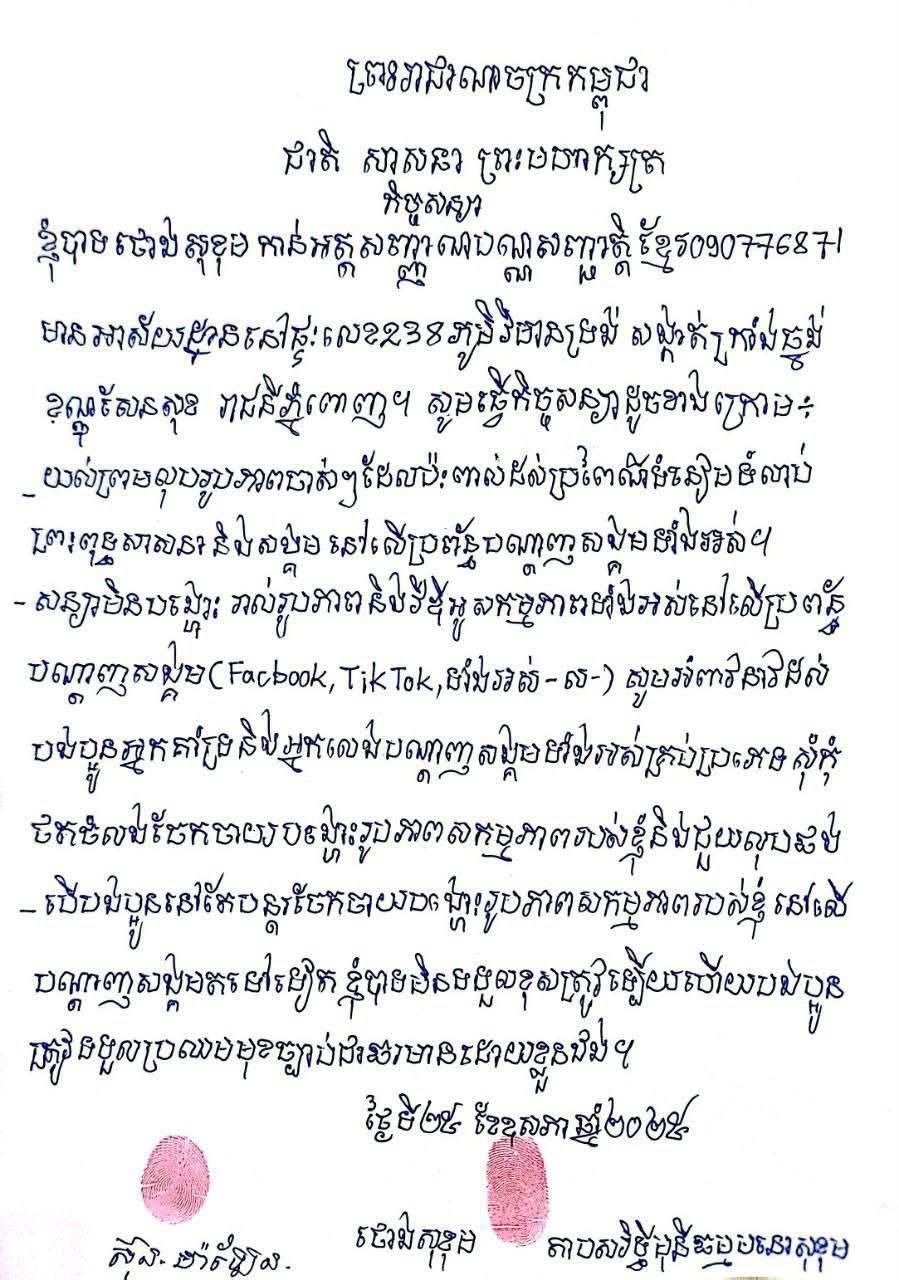 ព្រះរាជាណាចក្រកម្ពុជា
ជាតិ សាសនា ព្រះមហាក្សត្រ
កិច្ចសន្យា
ខ្ញុំបាទ ថោង សុខុម កាន់អត្តសញ្ញាណបណ្ណសញ្ជាត្តិខ្មែរ 090776871
មានអាស័យដ្ឋាននៅផ្ទះលេខ238 ភូមិវិមានទ្រង់ សង្កាត់ក្រាំងធ្នង់
ខ័ណ្ឌសែនសុខ រាជធីភ្នំពេញ។ សូមធ្វើកិច្ចសន្យាដូចខាងក្រោម÷
_ យល់ព្រមលុបរូបភាពចាស់ៗដែលប៉ះពាល់ដល់ប្រពៃណីទំនៀមទំលាប់
ព្រះពុទ្ធសាសនានិងសង្គម នៅលើប្រព័ន្ធបណ្ដាញសង្គមទាំងអស់។
- សន្យាមិនបង្ហោះ រាល់រូបភាពនិងវីឌីអូសកម្មភាពទាំងអស់នៅលើប្រព័ន្ធ
បណ្ដាញសង្គម(Facbook, TikTok, ទាំងអស់-ល-) សូមអំពាវនាវដល់
បងប្អូនអ្នកគាំទ្រនិងអ្នកលេងបណ្ដាញសង្គមទាំងអស់គ្រប់ប្រភេទ សុំកុំ
ថតចំលងចែកចាយបង្ហោះរូបភាពសកម្មភាពរបស់ខ្ញុំនិងជួយលុបផង
_ បើបងប្អូននៅតែបន្តរចែកចាយបង្ហោះរូបភាពសកម្មភាពរបស់ខ្ញុំ នៅលើ
បណ្ដាញសង្គមតទៅទៀត ខ្ញុំបាទមិនទទួលខុសត្រូវឡើយហើយបងប្អូន
ត្រូវទទួលប្រឈមមុខច្បាប់ជាធរមានដោយខ្លួនឯង។
ថ្ងៃទី២៥ ខែឧសភា ឆ្នាំ២០២៥
ថោង សុខុម